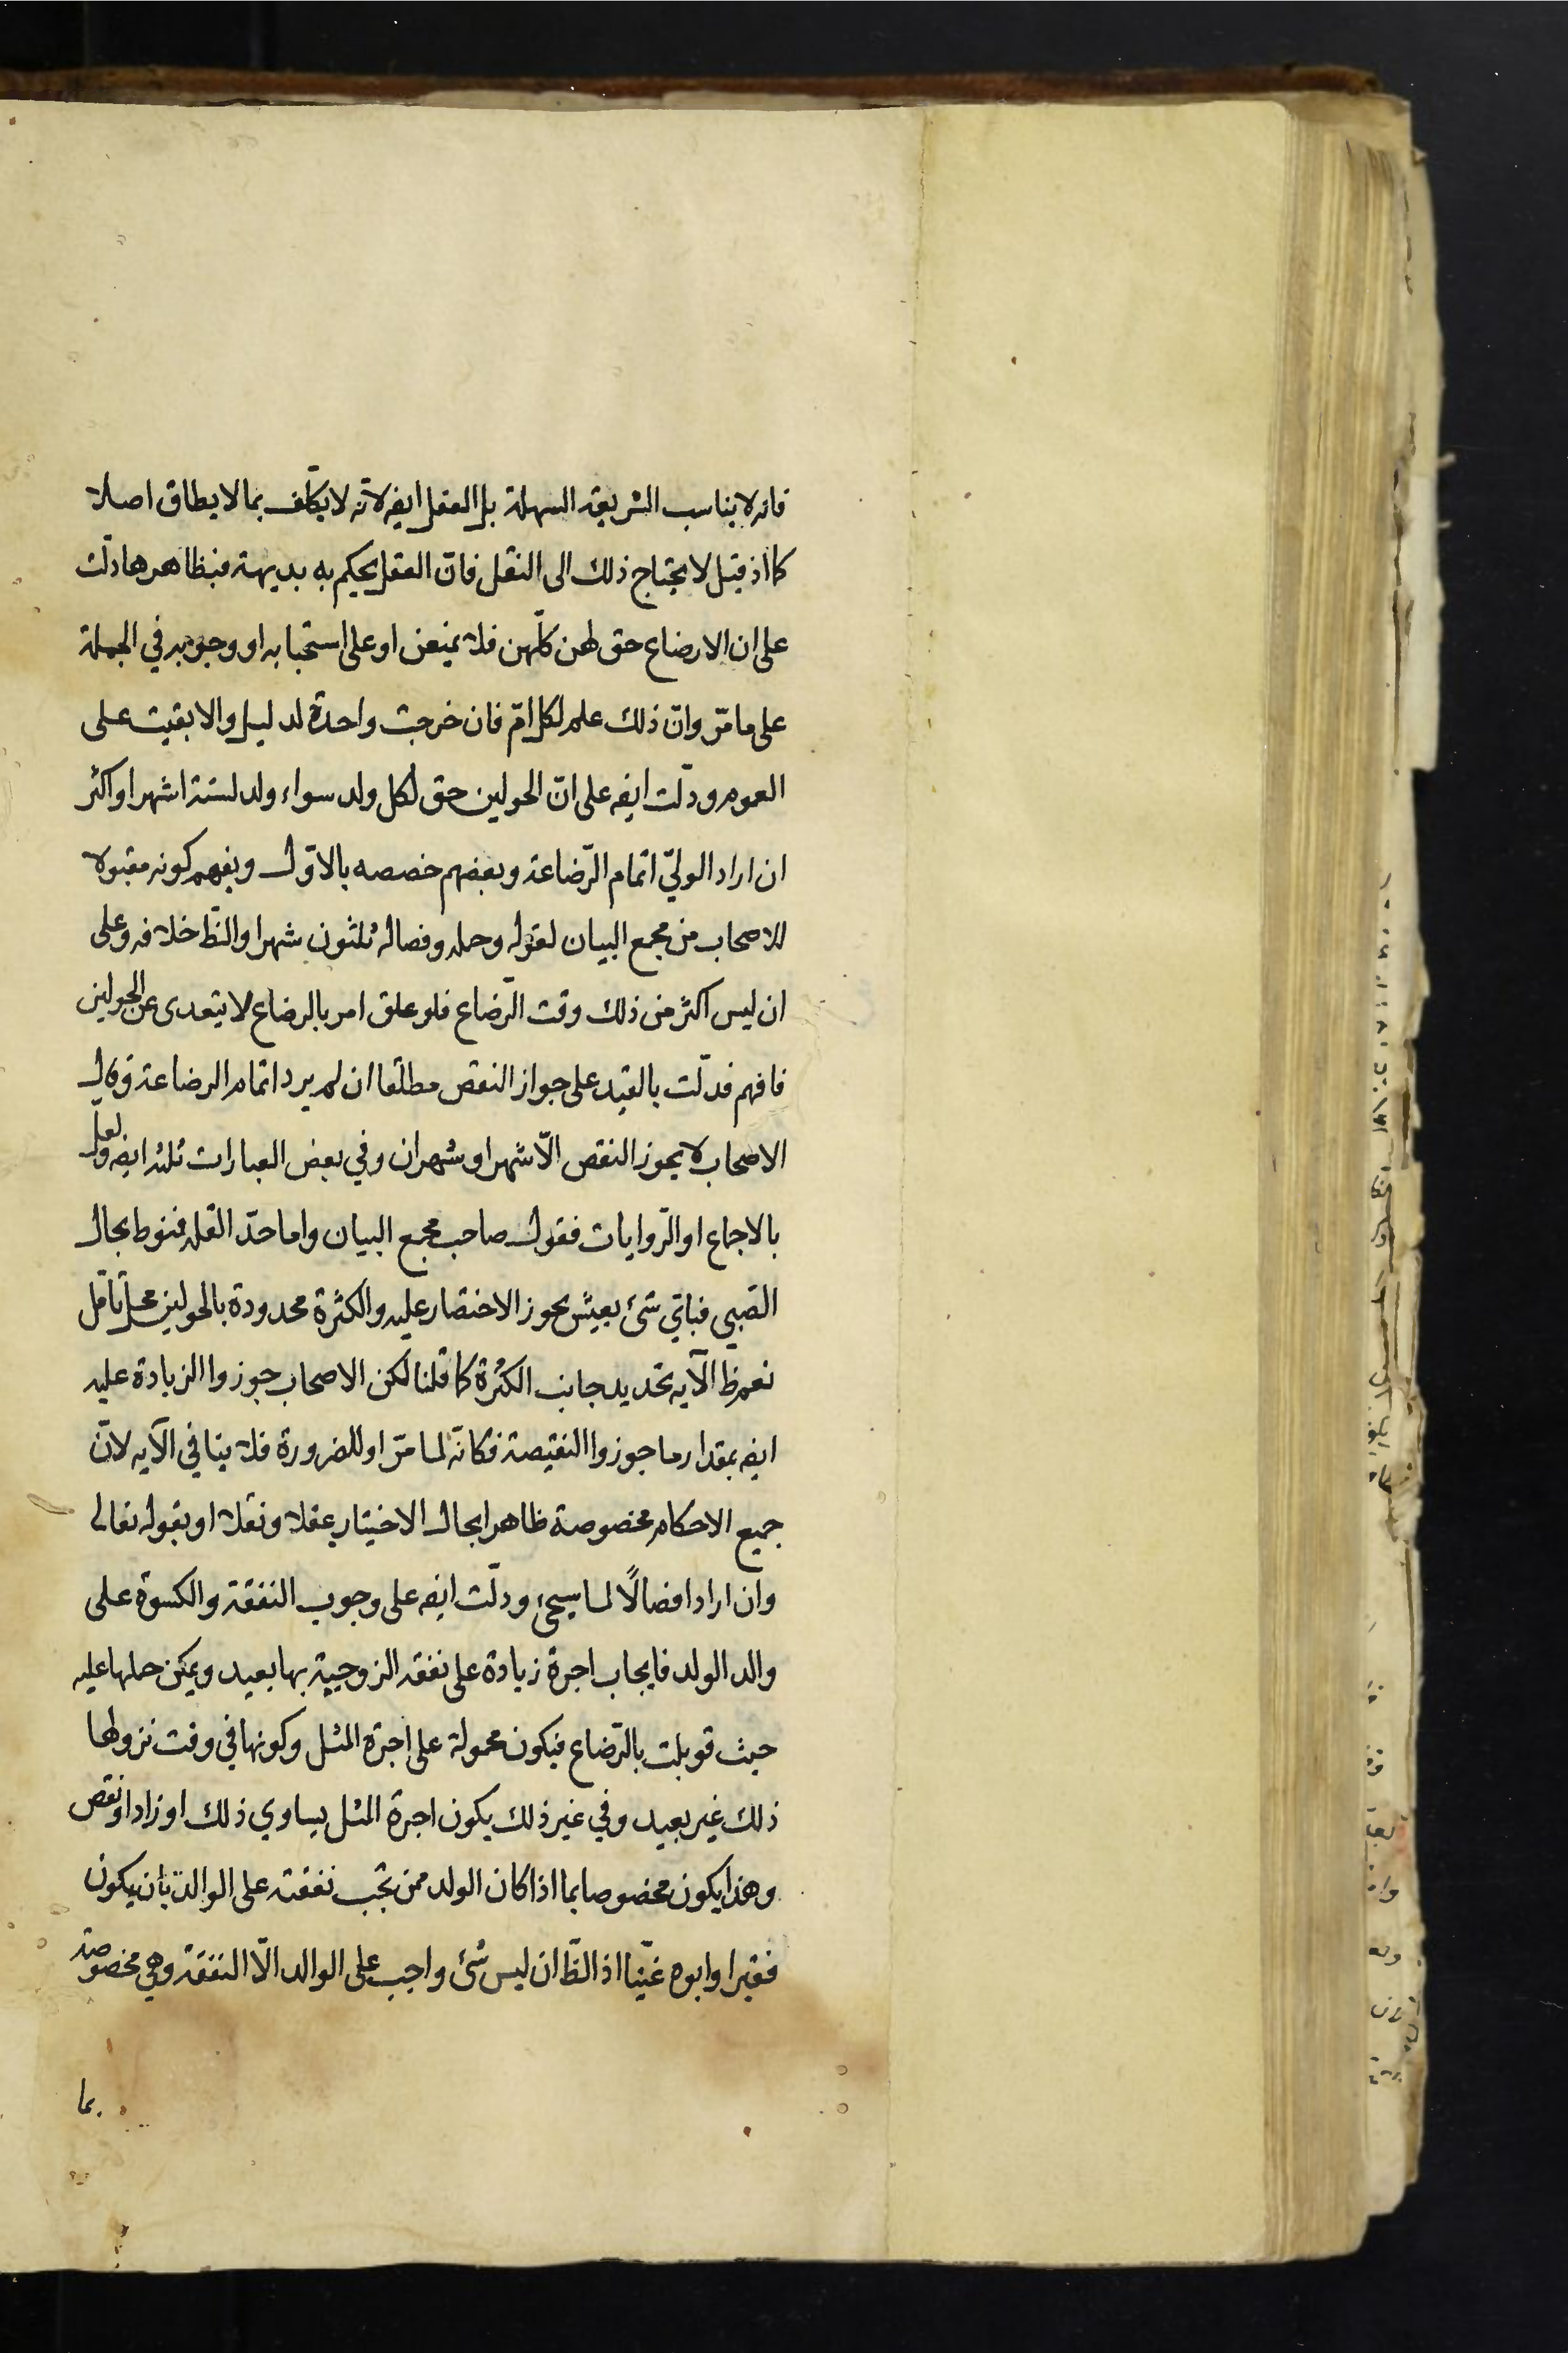 فانه لا يناسب الشريعة السهلة بل العقل ايضه لانّه لا يكلّف بما لا يطاق اصلا
كما اذ قيل لا يحتاج ذلك الى النقل فانّ العقل يحكم به بديهة فبظاهرها دلّت
على ان الارضاع حق لهن كلّهن فلا يمنعن او على استحبابه او وجوبه في الجملة
على ما مرّ وانّ ذلك علم لكل امّ فان خرجت واحدة لدليل والا بقيت على
العموم ودلّت ايضه على انّ الحولين حق لكل ولد سواء ولد لستة اشهر او اكثر
ان اراد الوليّ اتمام الرّضاعة وبعضهم خصصه بالاوّل ويفهم كونه مقبولا
للاصحاب من مجمع البيان لقوله وحمله وفصاله ثلثون شهرا والظّ خلافه وعلى
ان ليس اكثر من ذلك وقت الرّضاع فلو علق امر بالرضاع لا يتعدى عن الحولين
فافهم فدلّت بالقيد على جواز النقص مطلقا ان لم يرد اتمام الرضاعة وقال
الاصحاب لا يجوز النقص الّا شهر او شهران وفي بعض العبارات ثلثه ايضه ولعل
بالاجماع او الرّوايات فقول صاحب مجمع البيان واما حدّ القلة فنوط بحال
الصّبي فباىّ شئ يعيش يجوز الاختصار عليه والكثرة محدودة بالحولين محل تامّل
نعم ظ الآيه تحديد جانب الكثرة كما قلنا لكن الاصحاب جوزوا الزيادة عليه
ايضه بمقدار ما جوزوا النقيصة فكانّه لما مرّ او للضرورة فلا ينافي الآيه لانّ
جميع الاحكام مخصوصة ظاهرا بحال الاختيار عقلا ونقلا او بقوله تعالى
وان ارادا فصالًا لما سيجئ ودلّت ايضه على وجوب النفقة والكسوة على
والد الولد فايجاب اجرة زيادة على نفقه الزوجية بها بعيد ويمكن حملها عليه
حيث قوبلت بالرّضاع فيكون محمولة على اجرة المثل وكونها في وقت نزولها
ذلك غير بعيد وفي غير ذلك يكون اجرة المثل يساوي ذلك او زاد او نقص
وهذا يكون مخصوصا بما اذا كان الولد ممن تجب نفقته على الوالد بان يكون
فقيرا وابوه غنيّا اذ الظّ ان ليس شئ واجب على الوالد الّا النفقة وهي مخصوصة
بما